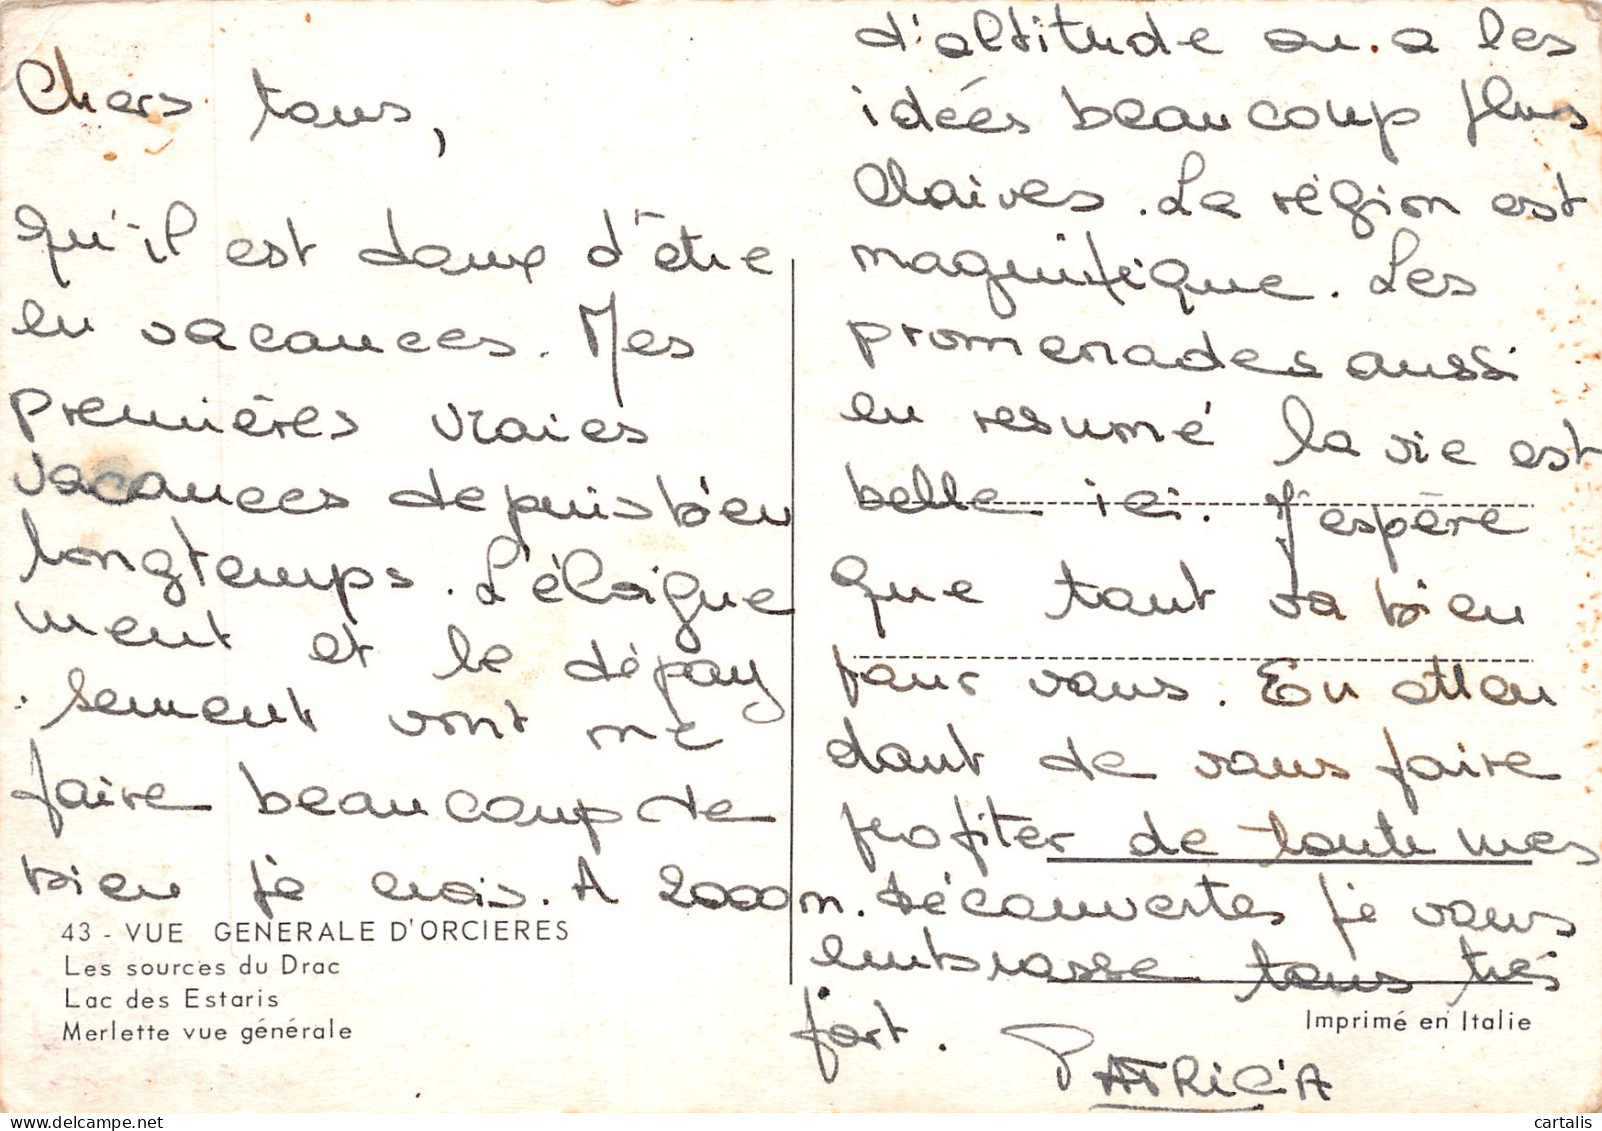 Chers tous,
Qu'il est doux d'être
en vacances. Mes
premières vraies
vacances depuis bien
longtemps. L'éloigne
ment et le dépay
sement vont me
faire beaucoup de
bien je crois. A 2000 m.
43 - VUE GENERALE D'ORCIERES
Les sources du Drac
Lac des Estaris
Merlette vue générale
d'altitude on a les
idées beaucoup plus
claires. La région est
magnifique. Les
promenades aussi
en resumé la vie est
belle ici. J'espère
que tout va bien
pour vous. En atten
dant de vous faire
profiter de toute mes
découvertes je vous
embrasse tous très
fort.
PATRICIA
Imprimé en Italie
cartalis